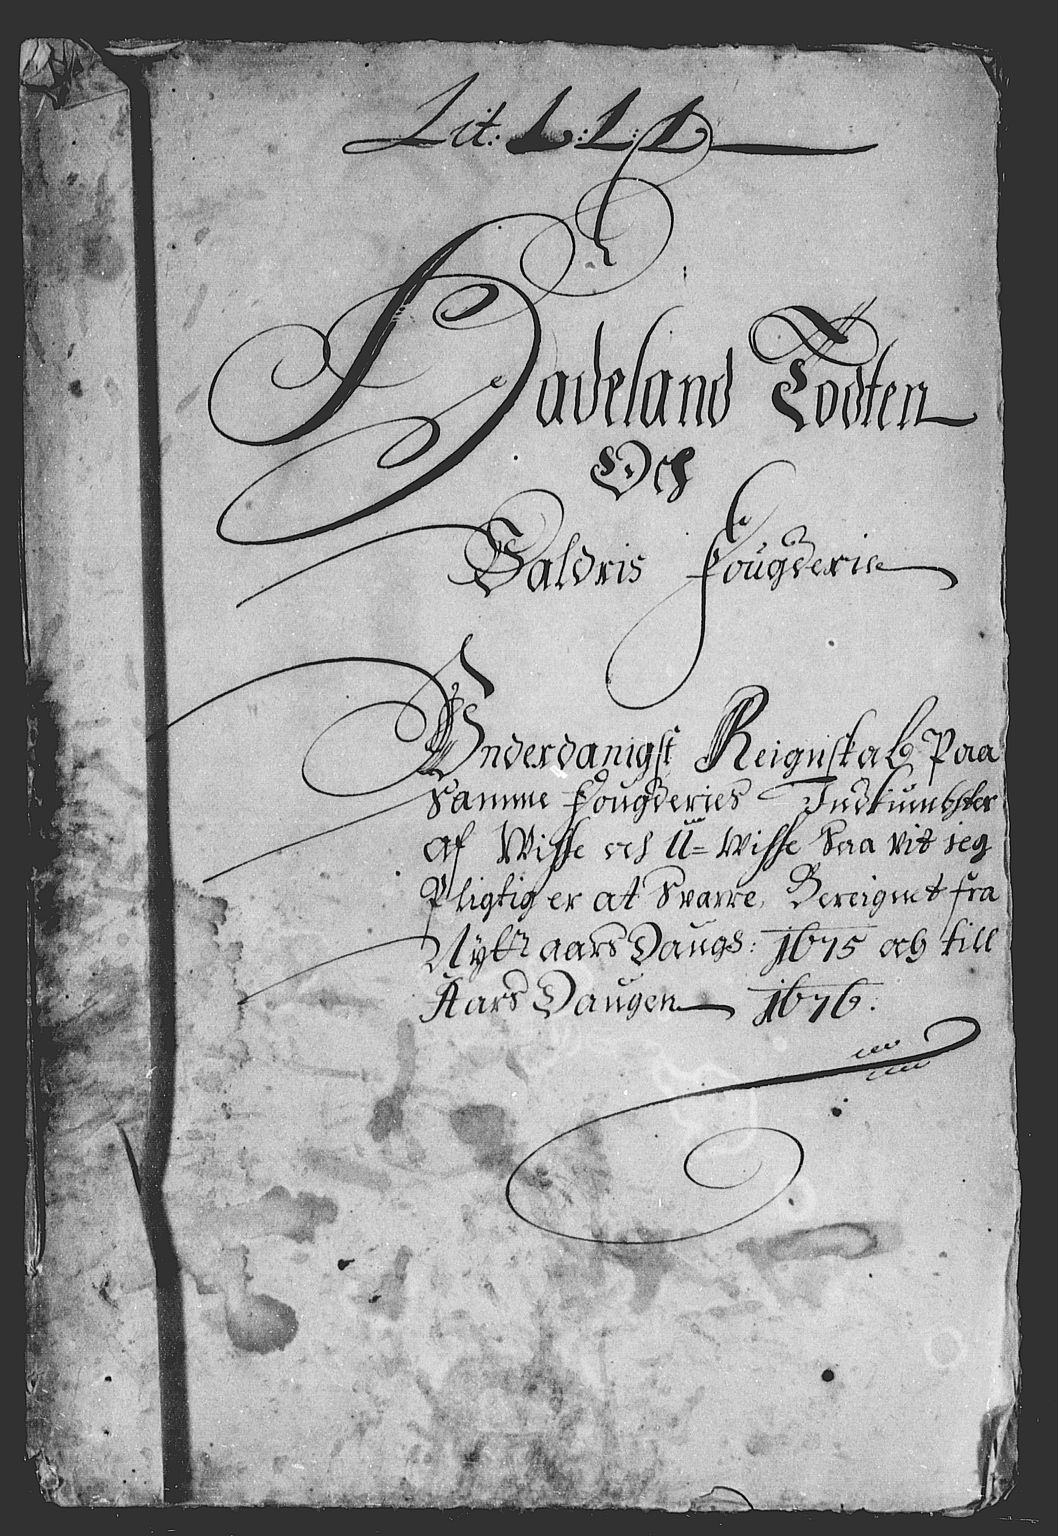 Lit: L: L: L
Hadeland Todten
Och
Valdris Fougderie
Vnderdanigst Reignskab Paa
Samme Fougderies Indkumbster
af Wisse och U=wisse Saa vit jeg
Pligtig er at Svarre, Bereignet fra
Nytt aars Daugs: 1675 och till
Aars Daugen 1676.